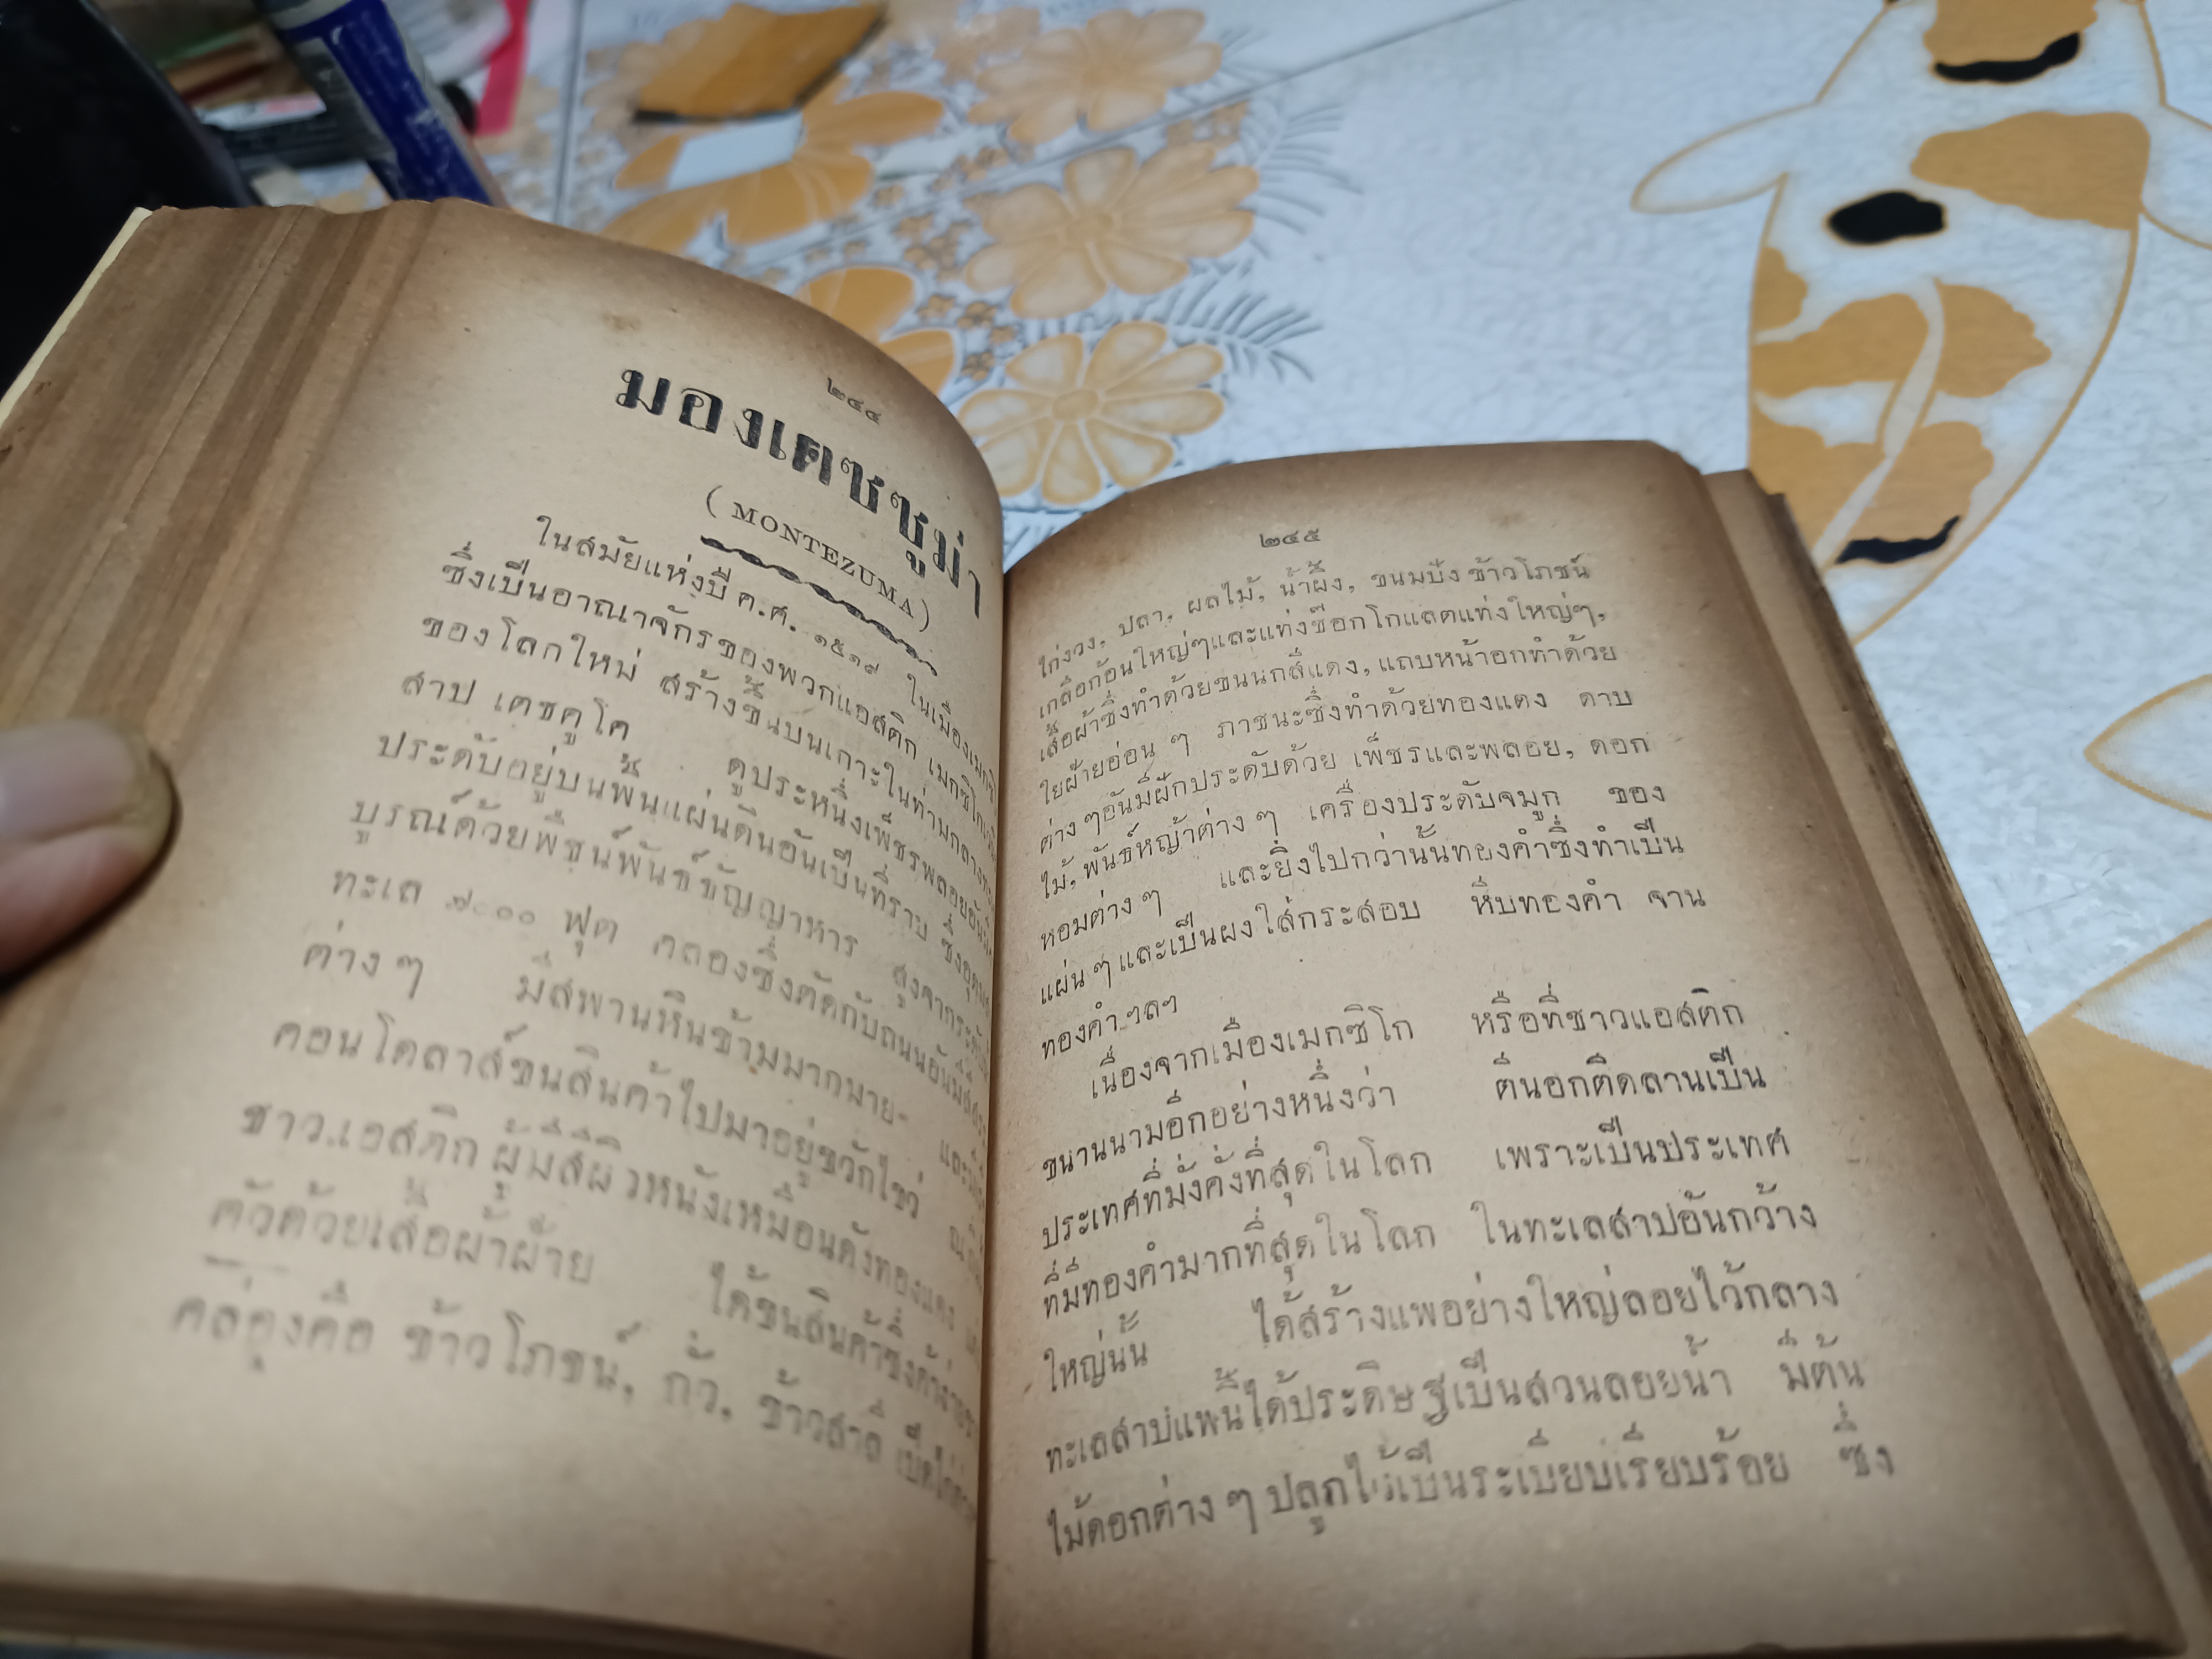 ๒๔๔
มองเตซซูม่า
(MONTEZUMA)
ในสมัยแห่งปี ค.ศ. ๑๕๑๙ ในเมือง
ซึ่งเป็นอาณาจักรของพวกแอสติก
ของโลกใหม่ สร้างขึ้นบนเกาะในท่ามกลาง
สาป เตซคูโค ดูประหนึ่งเพ็ชรพลอย
ประดับอยู่บนพื้นแผ่นดินอันเป็นที่ราบ
บูรณ์ด้วยพืชน์พันธ์ธัญญาหาร
ทะเล ฟุต คลองซึ่งตัดกับถนน
ต่าง ๆ มีสพานหินข้ามมากมาย
คอนโดลาส์ขนสินค้าไปมาอยู่ขวักไขว่
ผู้มีสีผิวหนังเหมือนดังทองแดง
ตัวด้วยเสื้อผ้าฝ้าย ได้ขนสินค้าซึ่ง
คือ ข้าวโภชน์, ถั่ว,
๒๔๕
ไก่งวง, ปลา, ผลไม้, น้ำผึ้ง, ขนมปังข้าวโภชน์
เกลือก้อนใหญ่ๆและแท่งช๊อกโกแลตแท่งใหญ่ๆ,
เสื้อผ้าซึ่งทำด้วยขนนกสีแดง, แถบหน้าอกทำด้วย
ใยฝ้ายอ่อน ๆ ภาชนะซึ่งทำด้วยทองแดง ดาบ
ต่าง ๆอันมีฝักประดับด้วย เพ็ชรและพลอย, ดอก
ไม้, พันธ์หญ้าต่าง ๆ เครื่องประดับจมูก ของ
หอมต่าง ๆ และยิ่งไปกว่านั้นทองคำซึ่งทำเป็น
แผ่น ๆ และเป็นผงใส่กระสอบ หีบทองคำ จาน
ทองคำ ฯลฯ
เนื่องจากเมืองเมกซิโก หรือที่ชาวแอสติก
ขนานนามอีกอย่างหนึ่งว่า ตีนอกติดลานเป็น
ประเทศที่มั่งคั่งที่สุดในโลก เพราะเป็นประเทศ
ที่มีทองคำมากที่สุดในโลก ในทะเลสาปอันกว้าง
ใหญ่นั้น ได้สร้างแพอย่างใหญ่ลอยไว้กลาง
ทะเลสาปแพนี้ได้ประดิษฐเป็นสวนลอยน้ำ มีต้น
ไม้ดอกต่าง ๆ ปลูกไว้เป็นระเบียบเรียบร้อย ซึ่ง